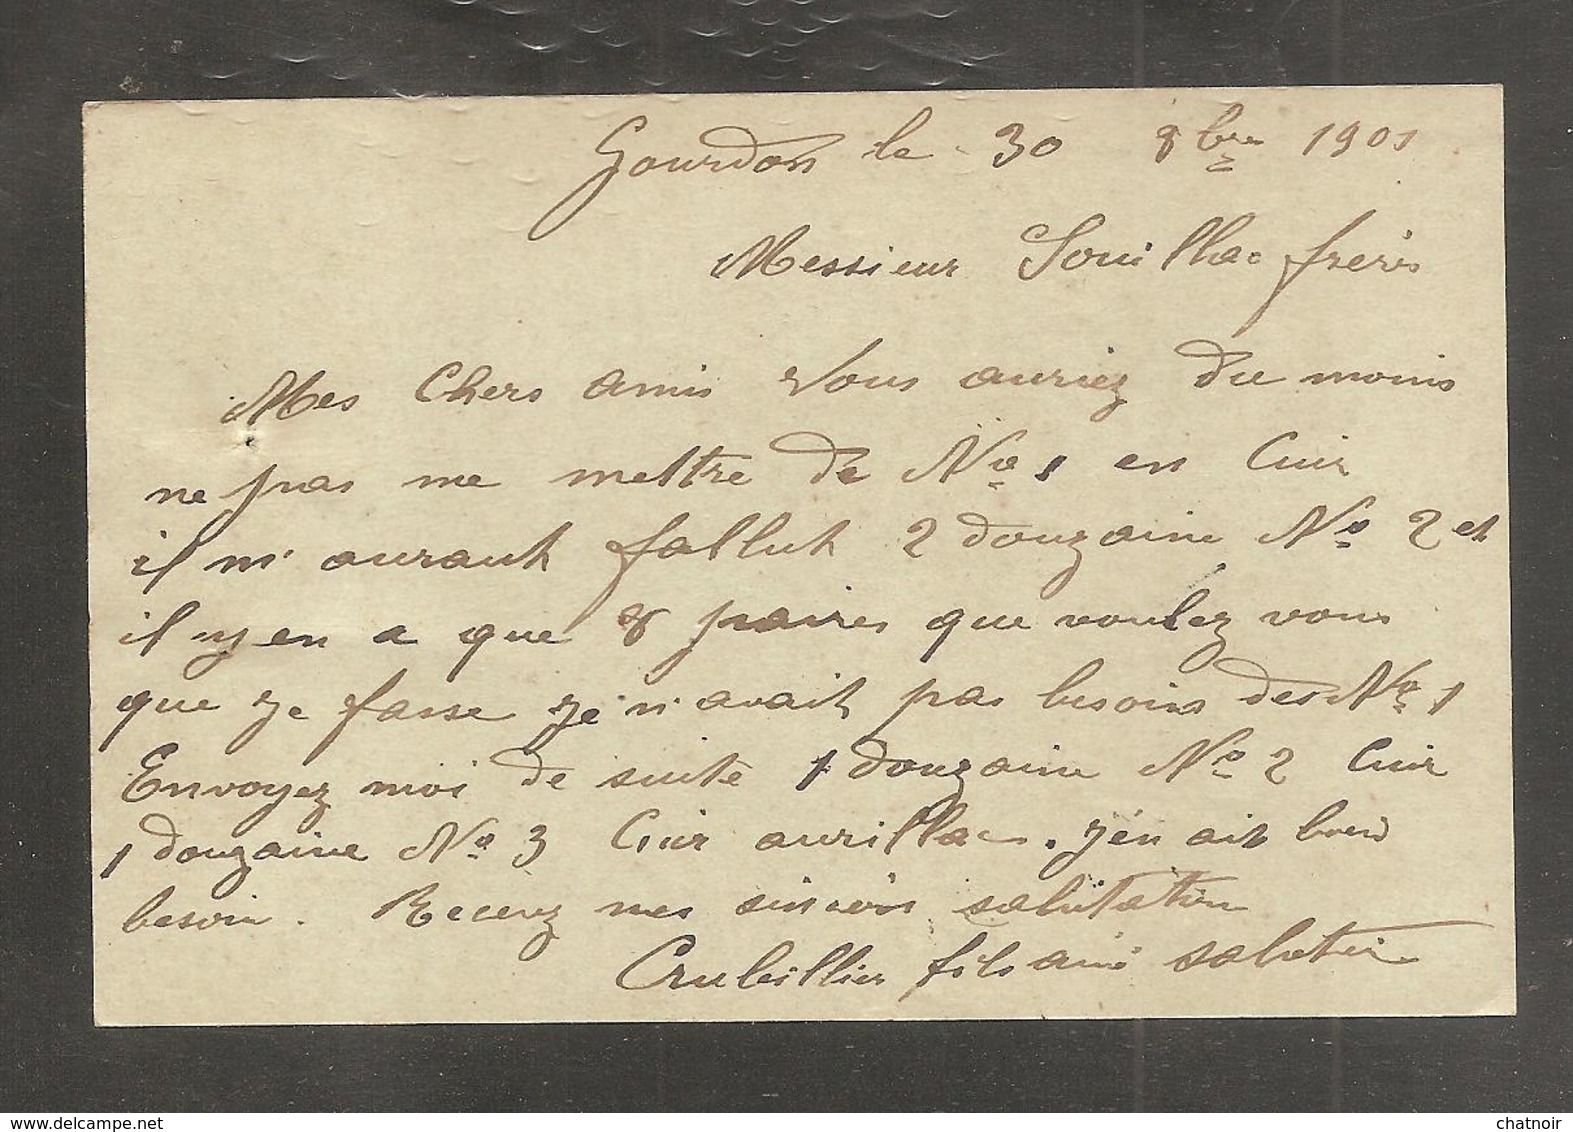 Gourdon le 30 8bre 1901
Messieurs Souilhac frères
Mes Chers amis Vous auriez Du moins
ne pas me mettre De No 1 en Cuir
il m'auraut fallut 2 douzaine No 2 et
il y en a que 8 paires que voulez vous
que je fasse je n'avait pas besoins des No 1
Envoyez moi De suite 1 douzaine No 2 Cuir
1 douzaine No 3 Cuir aurillac. j'en ait bien
besoin. Recevez mes sincères salutation
Crubillier fils ainé sabotier
delcampe.net
chatnoir